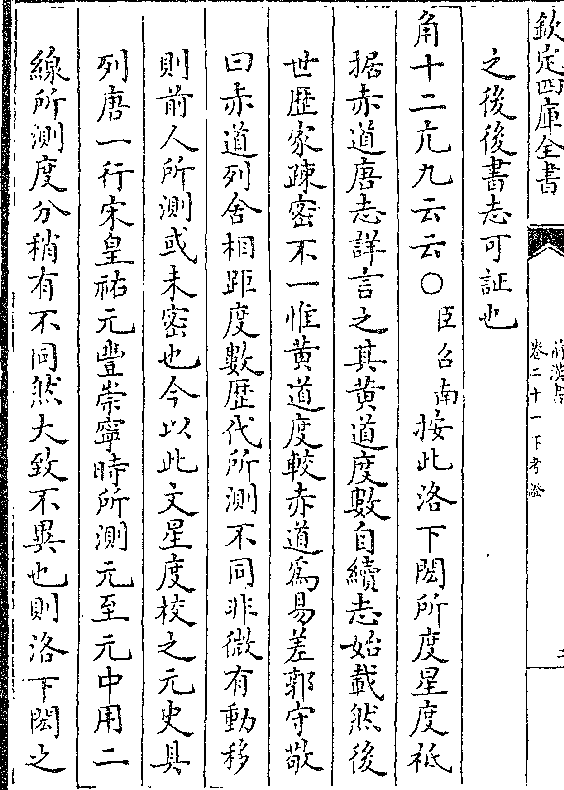 欽定四庫全書
前漢書
卷二十一下考證
之後後書志可証也
角十二亢九云云○臣召南按此洛下閎所度星度祗
据赤道唐志詳言之其黄道度數自續志始載然後
世歴家踈密不一惟黄道度較赤道為易差郭守敬
曰赤道列舍相距度數歴代所測不同非微有動移
則前人所測或未密也今以此文星度校之元史具
列唐一行宋皇祐元豐崇寧時所測元至元中用二
線所測度分稍有不同然大致不異也則洛下閎之